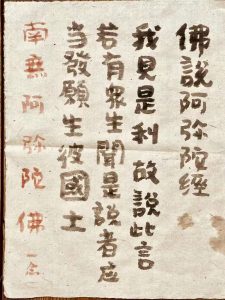 佛說阿弥陀經
我見是利故說此言
若有眾生聞是說者应
当發願生彼國土
南無阿弥陀佛